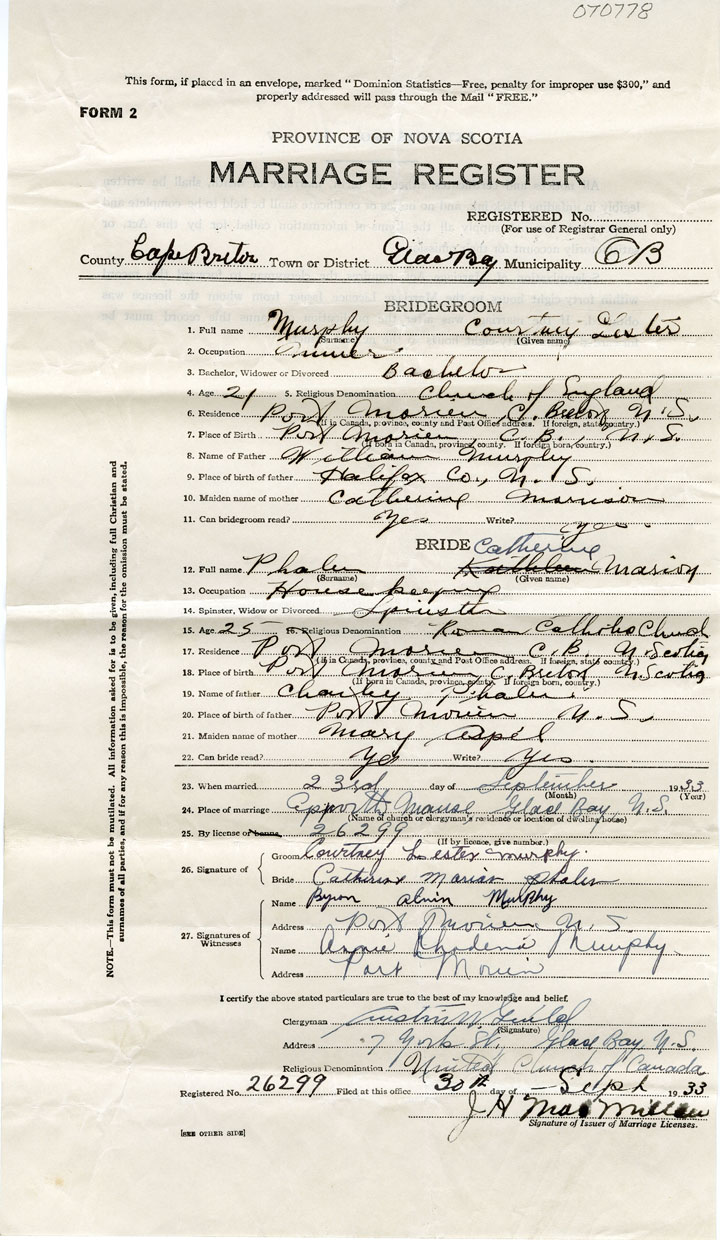 070778
This form, if placed in an envelope, marked “Dominion Statistics—Free, penalty for improper use $300,” and
properly addressed will pass through the Mail “FREE.”
FORM 2
PROVINCE OF NOVA SCOTIA
MARRIAGE REGISTER
REGISTERED No.
(For use of Registrar General only)
County Cape Breton Town or District Glace Bay Municipality CB
BRIDEGROOM
1. Full name Murphy Courtney Lester
(Surname) (Given name)
2. Occupation
3. Bachelor, Widower or Divorced Bachelor
4. Age 21 5. Religious Denomination Church of England
6. Residence Port Morien, C. Breton N.S.
(If in Canada, province, county and Post Office address. If foreign, state country.)
7. Place of Birth Port Morien C.B., N.S.
(If born in Canada, province, county. If foreign born, country.)
8. Name of Father William Murphy
9. Place of birth of father Halifax Co., N.S.
10. Maiden name of mother Catherine
11. Can bridegroom read? Yes Write? Yes
BRIDE
Catherine
12. Full name Phalen Kathleen Marion
(Surname) (Given name)
13. Occupation Housekeeping
14. Spinster, Widow or Divorced Spinster
15. Age 25 16. Religious Denomination Roman Catholic Church
17. Residence Port Morien C.B. N. Scotia
(If in Canada, province, county and Post Office address. If foreign, state country.)
18. Place of birth Port Morien C. Breton N. Scotia
(If born in Canada, province, county. If foreign born, country.)
19. Name of father Charley Phalen
20. Place of birth of father Port Morien N.S.
21. Maiden name of mother Mary
22. Can bride read? Yes Write? Yes.
23. When married 23rd day of September 1933
(Month) (Year)
24. Place of marriage Epworth Manse Glace Bay, N.S.
(Name of church or clergyman's residence or location of dwelling house)
25. By license or banns 26299
(If by licence, give number.)
26. Signature of
Groom Courtney Lester Murphy.
Bride Catherine Marion Phalen
27. Signatures of Witnesses
Name Byron Alvin Murphy
Address Port Morien N.S.
Name Annie Rhodena Murphy.
Address Port Morien
I certify the above stated particulars are true to the best of my knowledge and belief,
Clergyman
(Signature)
Address 7 York St. Glace Bay, N.S.
Religious Denomination United Church of Canada
Registered No. 26299 Filed at this office 30th day of Sept 1933
J H MacMillan
Signature of Issuer of Marriage Licenses.
[SEE OTHER SIDE]
NOTE.—This form must not be mutilated. All information asked for is to be given, including full Christian and
surnames of all parties, and if for any reason this is impossible, the reason for the omission must be stated.